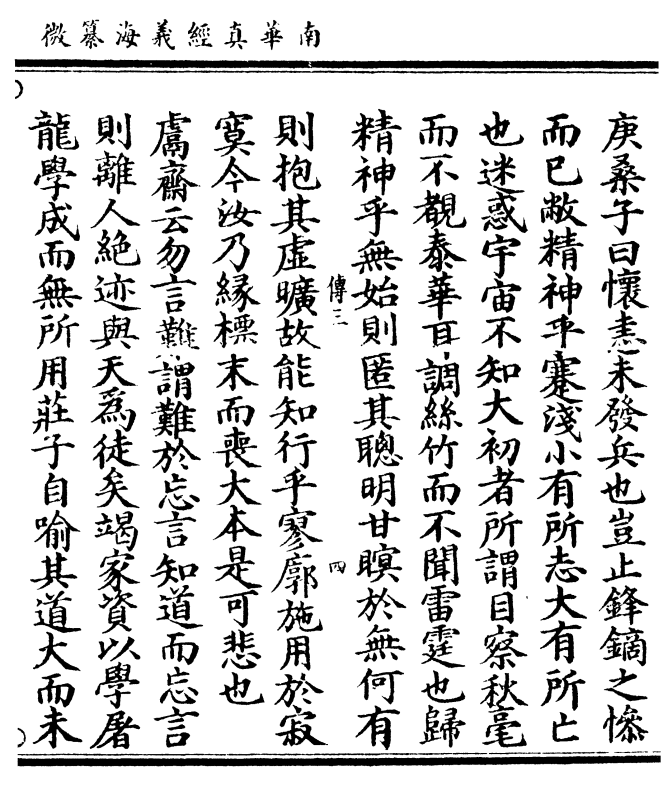 南華真經義海纂微
庚桑子曰懷恚未發兵也豈止鋒鏑之慘
而已敝精神乎蹇淺小有所志大有所亡
也迷惑宇宙不知大初者所謂目察秋毫
而不覩泰華耳調絲竹而不聞雷霆也歸
精神乎無始則匿其聰明甘瞑於無何有
傳三
四
則抱其虛曠故能知行乎寥廓施用於寂
寞今汝乃緣標末而喪大本是可悲也
鬳齋云勿言難謂難於忘言知道而忘言
則離人絕迹與天爲徒矣竭家資以學屠
龍學成而無所用莊子自喻其道大而未